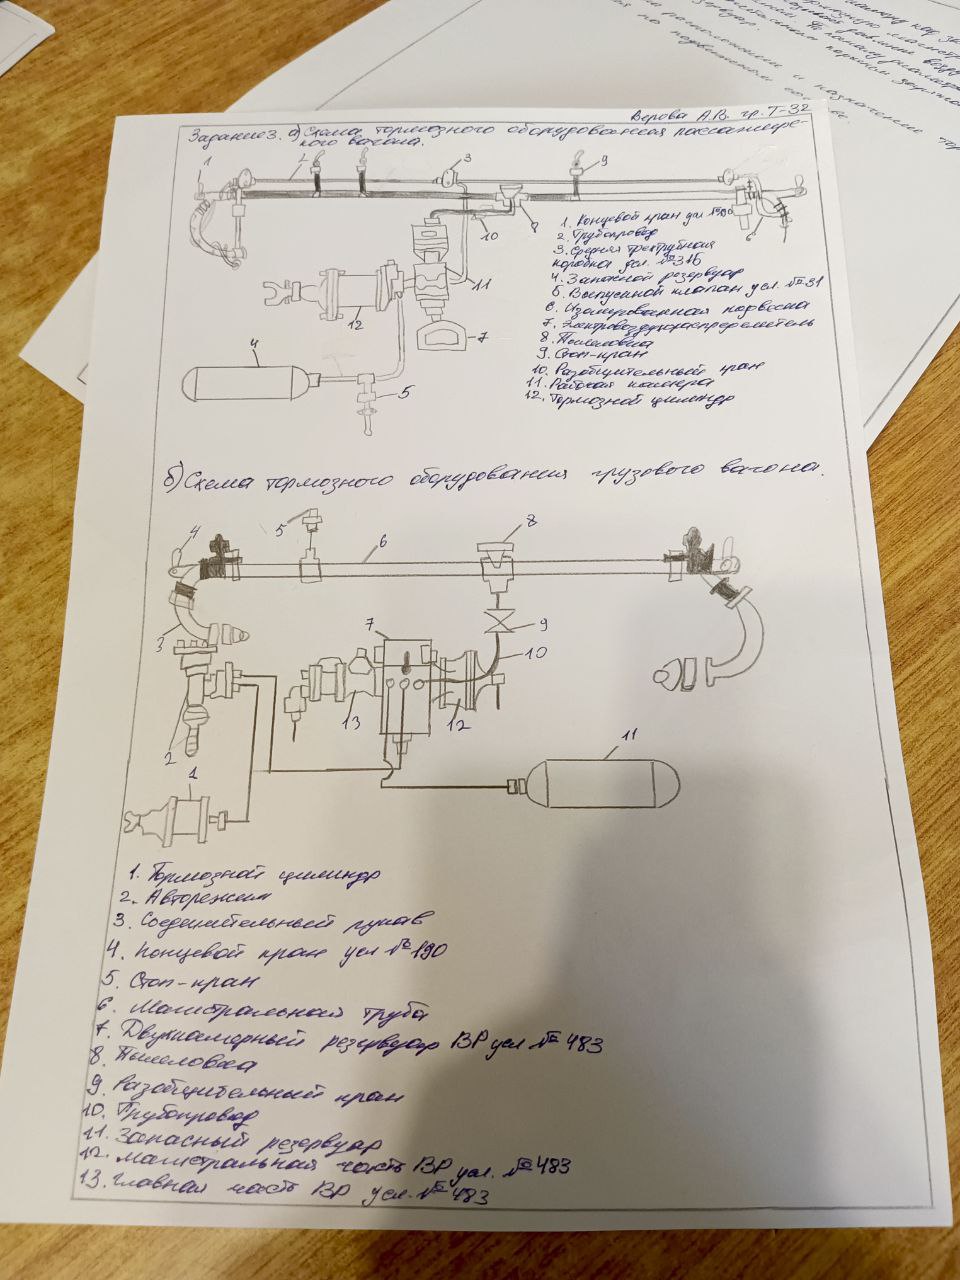 Верова А.В. гр. Т-32
Задание 3. а) Схема тормозного оборудования пассажирс-
кого вагона.
1 2 3 9
10 8
11
12
7
4
5
1. Концевой кран усл №190
2. Трубопровод
3. Средняя трехтрубная
коробка усл. №316
4. Запасной резервуар
5. Выпускной клапан усл. №31
6. Изолированная подвеска
7. Электровоздухораспределитель
8. Пылеловка
9. Стоп-кран
10. Разобщительный кран
11. Рабочая камера
12. Тормозной цилиндр
б) Схема тормозного оборудования грузового вагона.
4 5 6 8
3 7 9
10
13 12
2
1 11
1. Тормозной цилиндр
2. Авторежим
3. Соединительный рукав
4. Концевой кран усл №190
5. Стоп-кран
6. Магистральная труба
7. Двухкамерный резервуар ВР усл №483
8. Пылеловка
9. Разобщительный кран
10. Трубопровод
11. Запасный резервуар
12. Магистральная часть ВР усл. №483
13. Главная часть ВР усл. №483